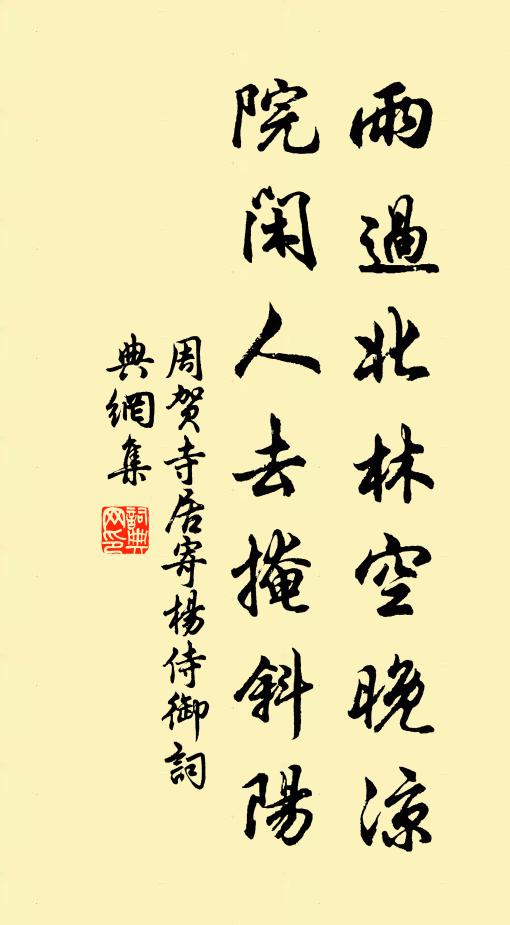 雨過北林空晚涼
院閑人去掩斜陽
周賀寺居寄楊侍御詞
典網集
詞典
网印